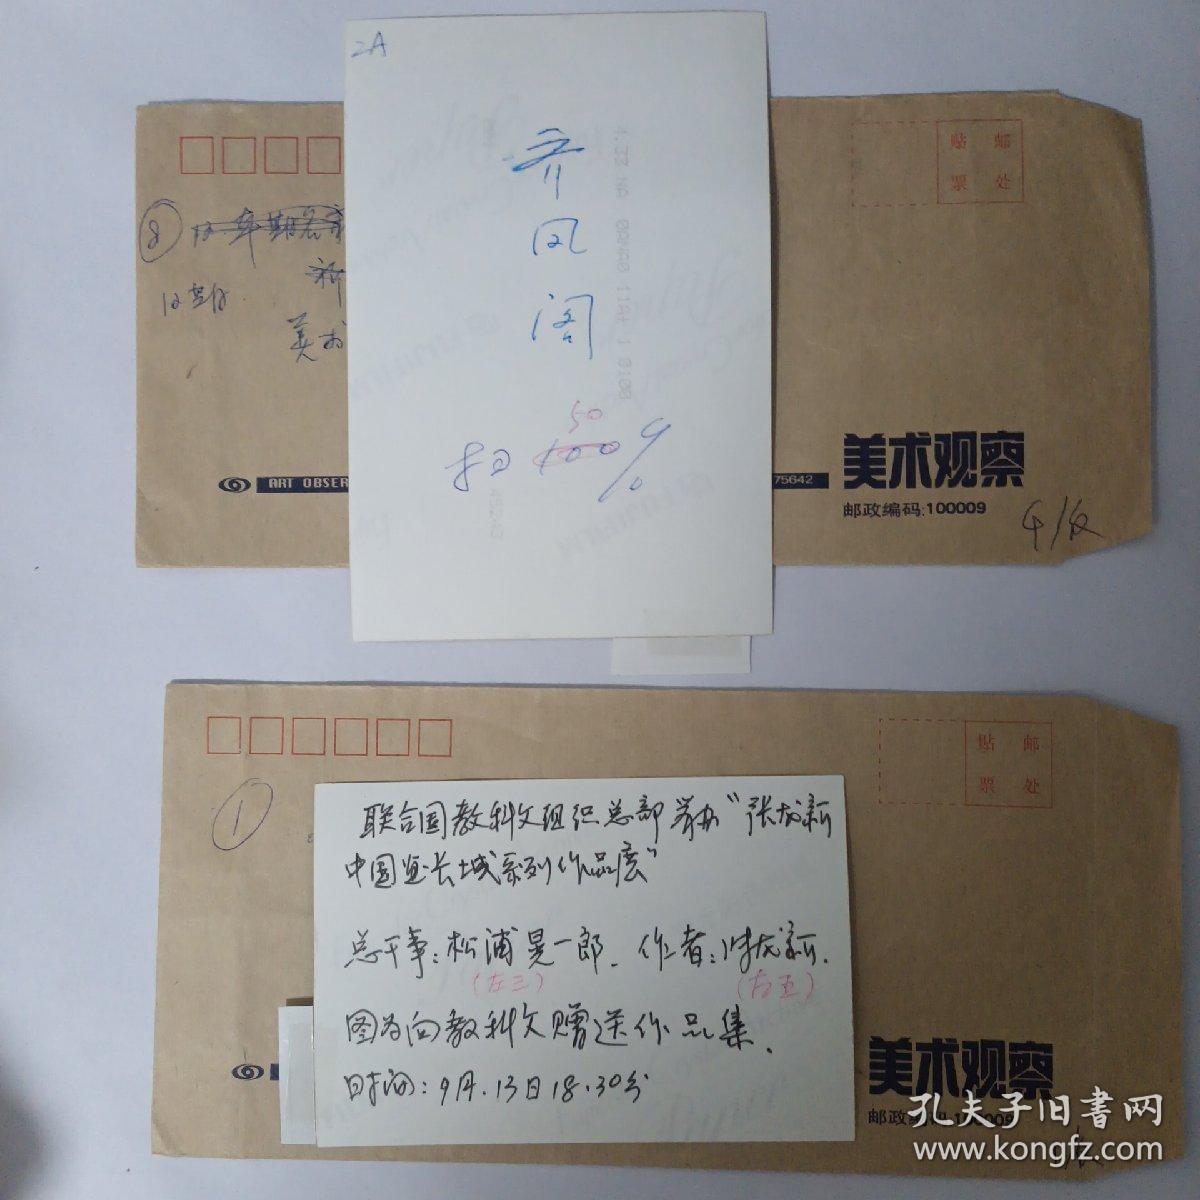 2A
齐
凤
阁
50
扫 100%
8
美术
贴 邮
票 处
ART OBSER
75642
美术观察
邮政编码:100009
贴 邮
票 处
1
联合国教科文组织总部举办“张龙新
中国画长城系列作品展”
总干事:松浦晃一郎. 作者:张龙新.
(左三) (右五)
图为向教科文赠送作品集.
时间:9月.13日18.30分
美术观察
邮政编码:100009
孔夫子旧書网
www.kongfz.com